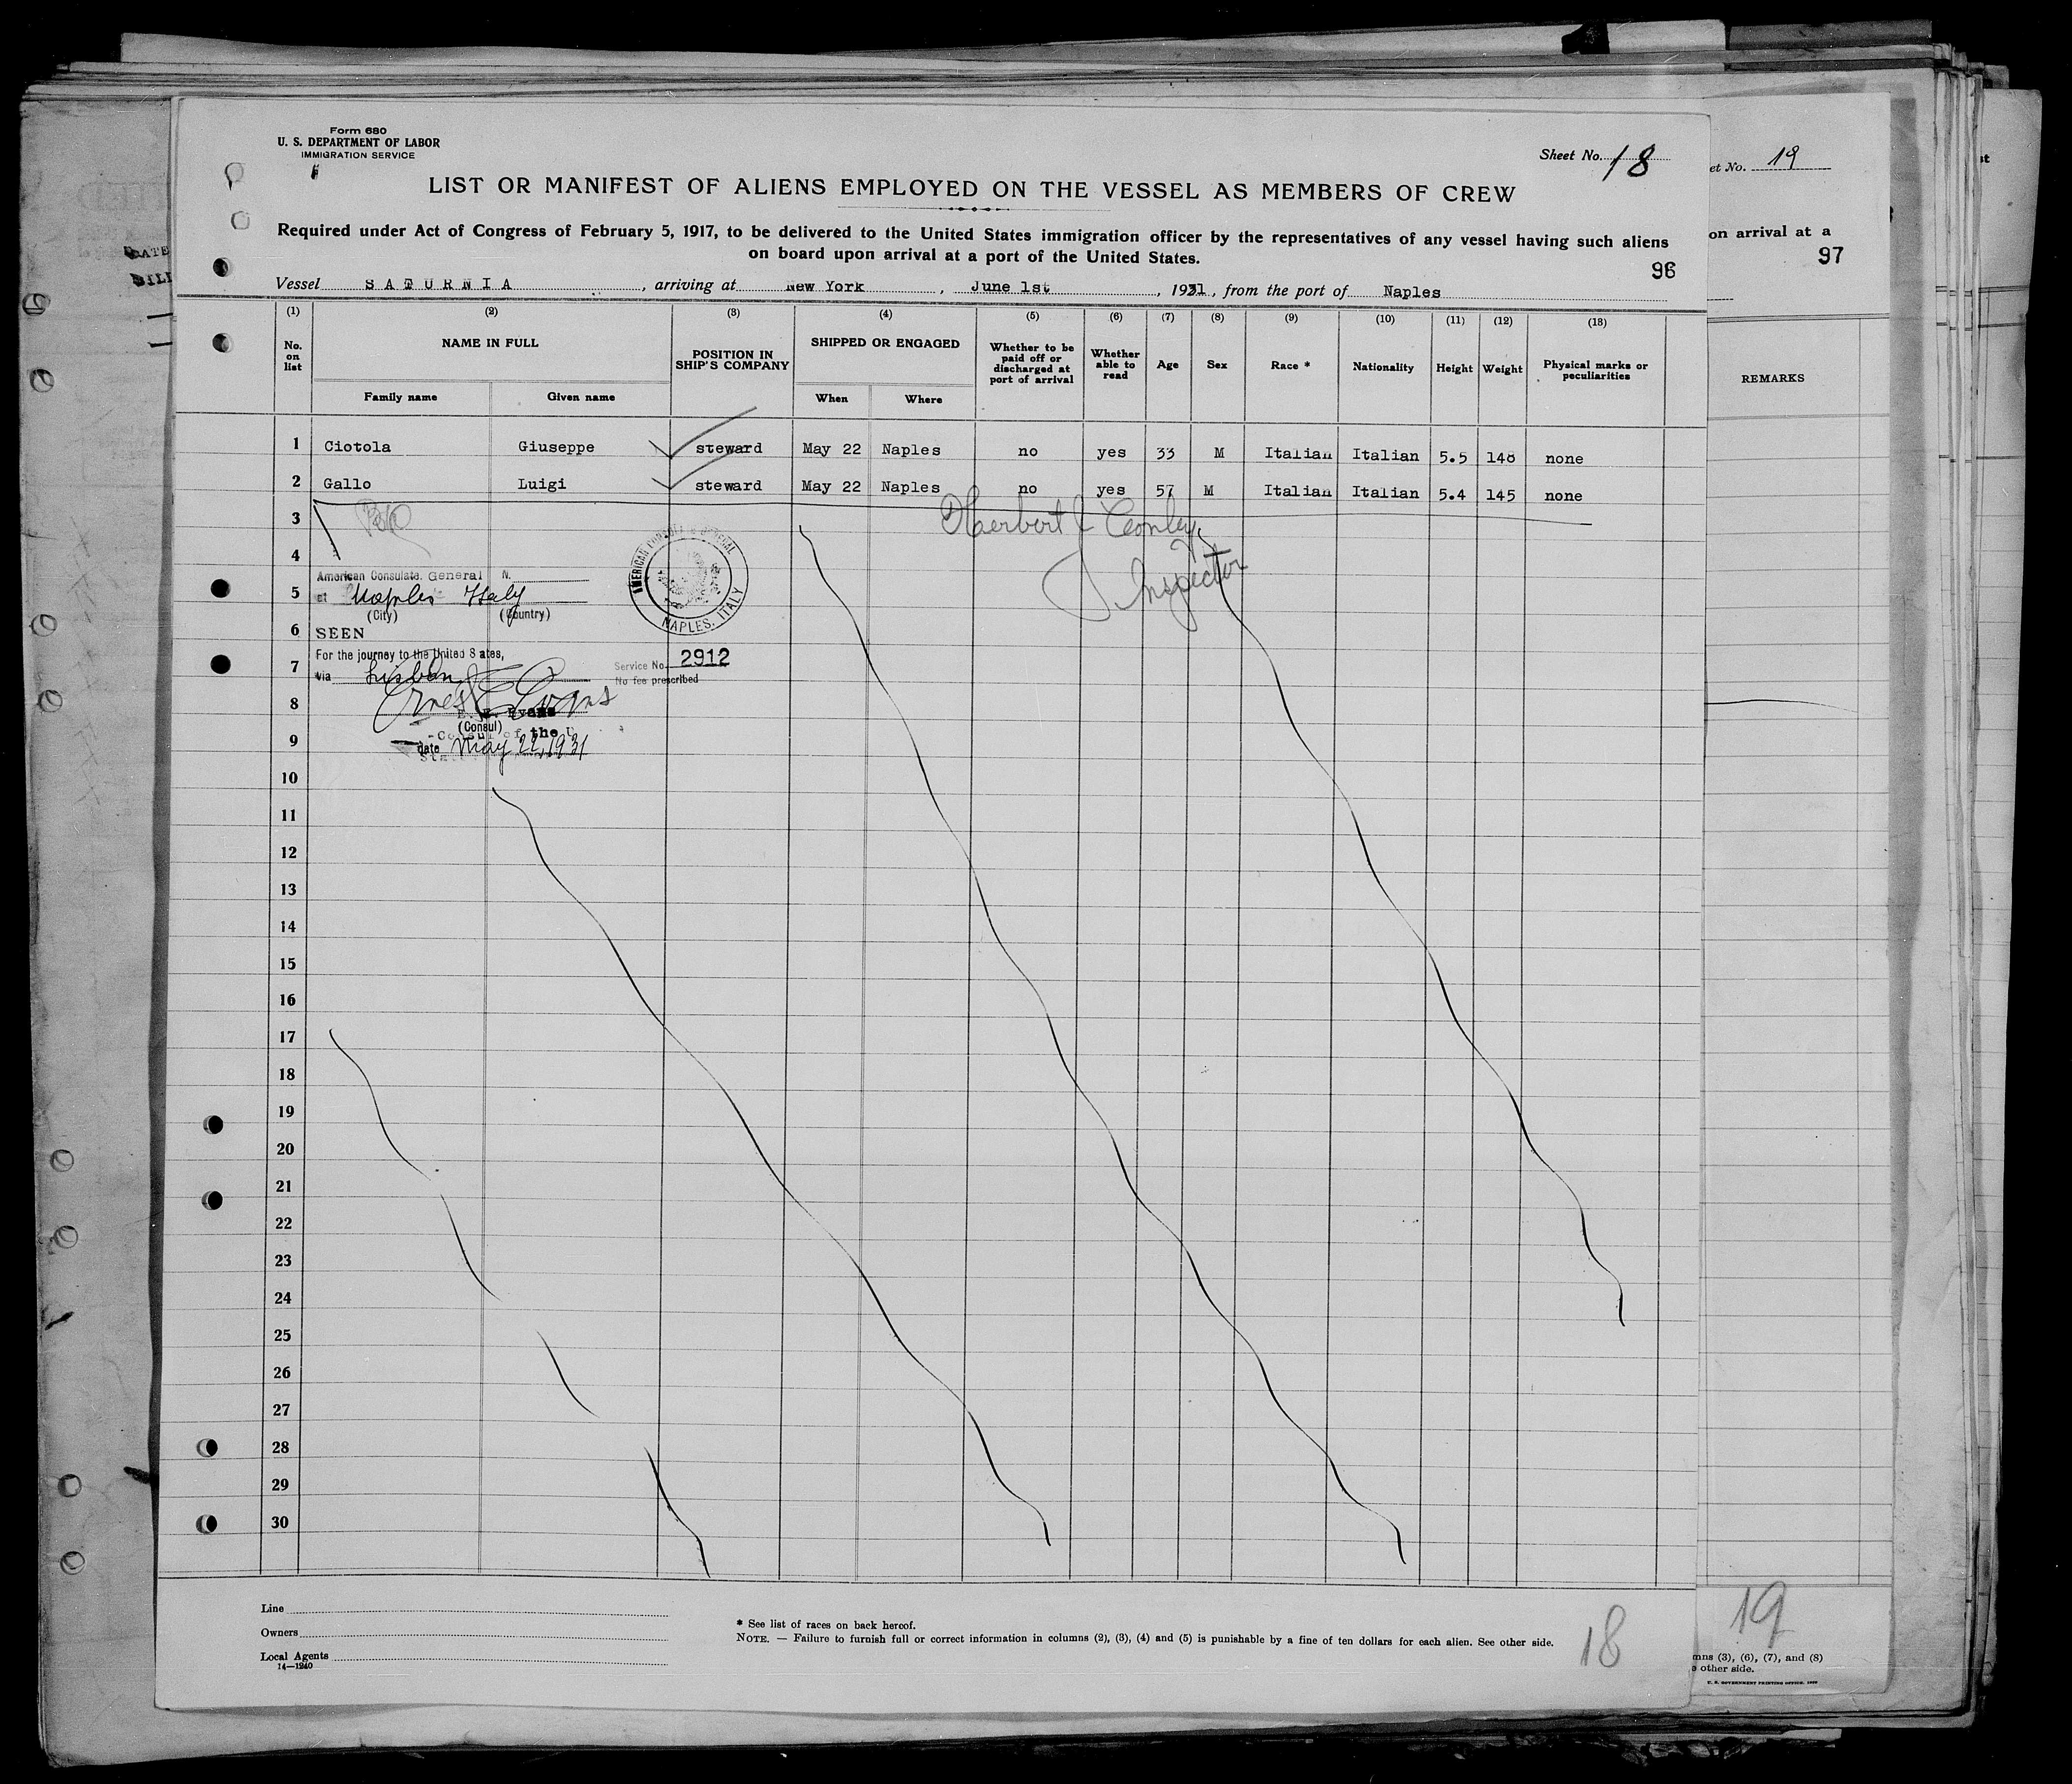 Form 680
U. S. DEPARTMENT OF LABOR
IMMIGRATION SERVICE
Sheet No. 18
LIST OR MANIFEST OF ALIENS EMPLOYED ON THE VESSEL AS MEMBERS OF CREW
Required under Act of Congress of February 5, 1917, to be delivered to the United States immigration officer by the representatives of any vessel having such aliens
on board upon arrival at a port of the United States.
96
Vessel SATURNIA, arriving at New York, June 1st, 1931, from the port of Naples
(1) (2) (3) (4) (5) (6) (7) (8) (9) (10) (11) (12) (13)
No. on list NAME IN FULL POSITION IN SHIP'S COMPANY SHIPPED OR ENGAGED Whether to be paid off or discharged at port of arrival Whether able to read Age Sex Race * Nationality Height Weight Physical marks or peculiarities
Family name Given name When Where
1 Ciotola Giuseppe steward May 22 Naples no yes 33 M Italian Italian 5.5 148 none
2 Gallo Luigi steward May 22 Naples no yes 57 M Italian Italian 5.4 145 none
3 Herbert J Conley
4 Inspector
American Consulate General N.
5 at Naples Italy
(City) (Country)
AMERICAN CONSULATE GENERAL
NAPLES, ITALY
6 SEEN
For the journey to the United States,
7 via Lisbon
Service No. 2912
No fee prescribed
Ernest E Evans
8 E. E. Evans
(Consul)
-Consul of the U
9 date May 22, 1931
10
11
12
13
14
15
16
17
18
19
20
21
22
23
24
25
26
27
28
29
30
Line
Owners
Local Agents
14—1240
* See list of races on back hereof.
NOTE. — Failure to furnish full or correct information in columns (2), (3), (4) and (5) is punishable by a fine of ten dollars for each alien. See other side.
18
et No. 19
on arrival at a
97
REMARKS
19
mns (3), (6), (7), and (8)
other side.
U. S. GOVERNMENT PRINTING OFFICE